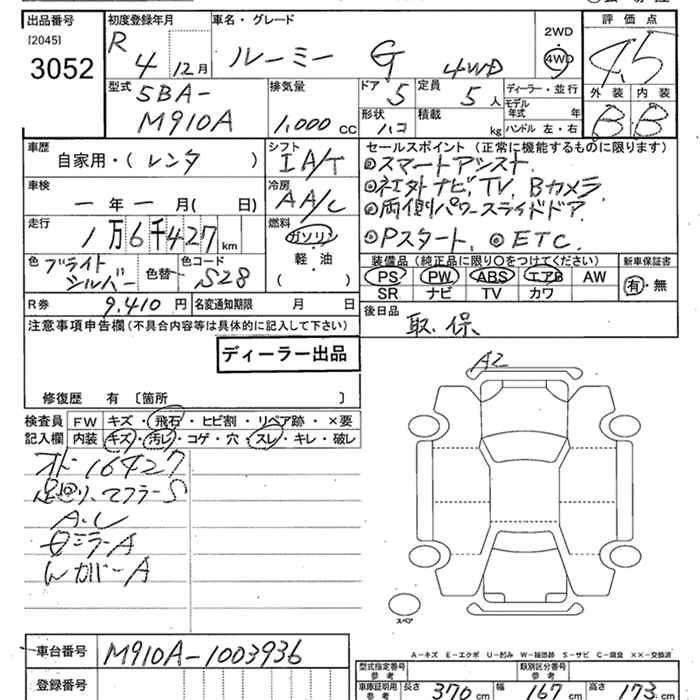 出品番号 初度登録年月 車名・グレード 評価点
[2045] R 4 12月 ルーミー G 4WD 2WD 4WD 4.5
3052
型式 排気量 ドア 定員 ディーラー・並行 外装 内装
5BA- 5 5人 モデル年式 年 B B
M910A 1,000 cc 形状 ハコ 積載 kg ハンドル 左・右
車歴 シフト セールスポイント(正常に機能するものに限ります)
自家用・(レンタ) IA/T ◎スマートアシスト
車検 冷房 ◎社外ナビ,TV,Bカメラ
一年一月(日) AA/C ◎両側パワースライドドア
走行 燃料
1万6千427km ガソリン ◎Pスタート、◎ETC.
色 ブライトシルバー 色替 色コード S28 軽・油 装備品(純正品に限り○をつけてください) 新車保証書
( ) PS PW ABS エアB AW 有・無
SR ナビ TV カワ
R券 9,410円 名変通知期限 月 日 後日品
注意事項申告欄(不具合内容等は具体的に記入して下さい) 取、保
ディーラー出品
修復歴 有〔箇所 〕 A2
検査員 FW キズ・飛石・ヒビ割・リペア跡・×要
記入欄 内装 キズ・汚レ・コゲ・穴・スレ・キレ・破レ
オドー16427
足回り、マフラーS
A・し
ミラーA
カバーA
スペア
A-キズ E-エクボ U-凹み W-補修跡 S-サビ C-腐食 ××-交換済
車台番号 M910A-1003936
型式指定番号 参考 類別区分番号 参考
登録番号 車庫証明用 参考 長さ 370cm 幅 167cm 高さ 173cm